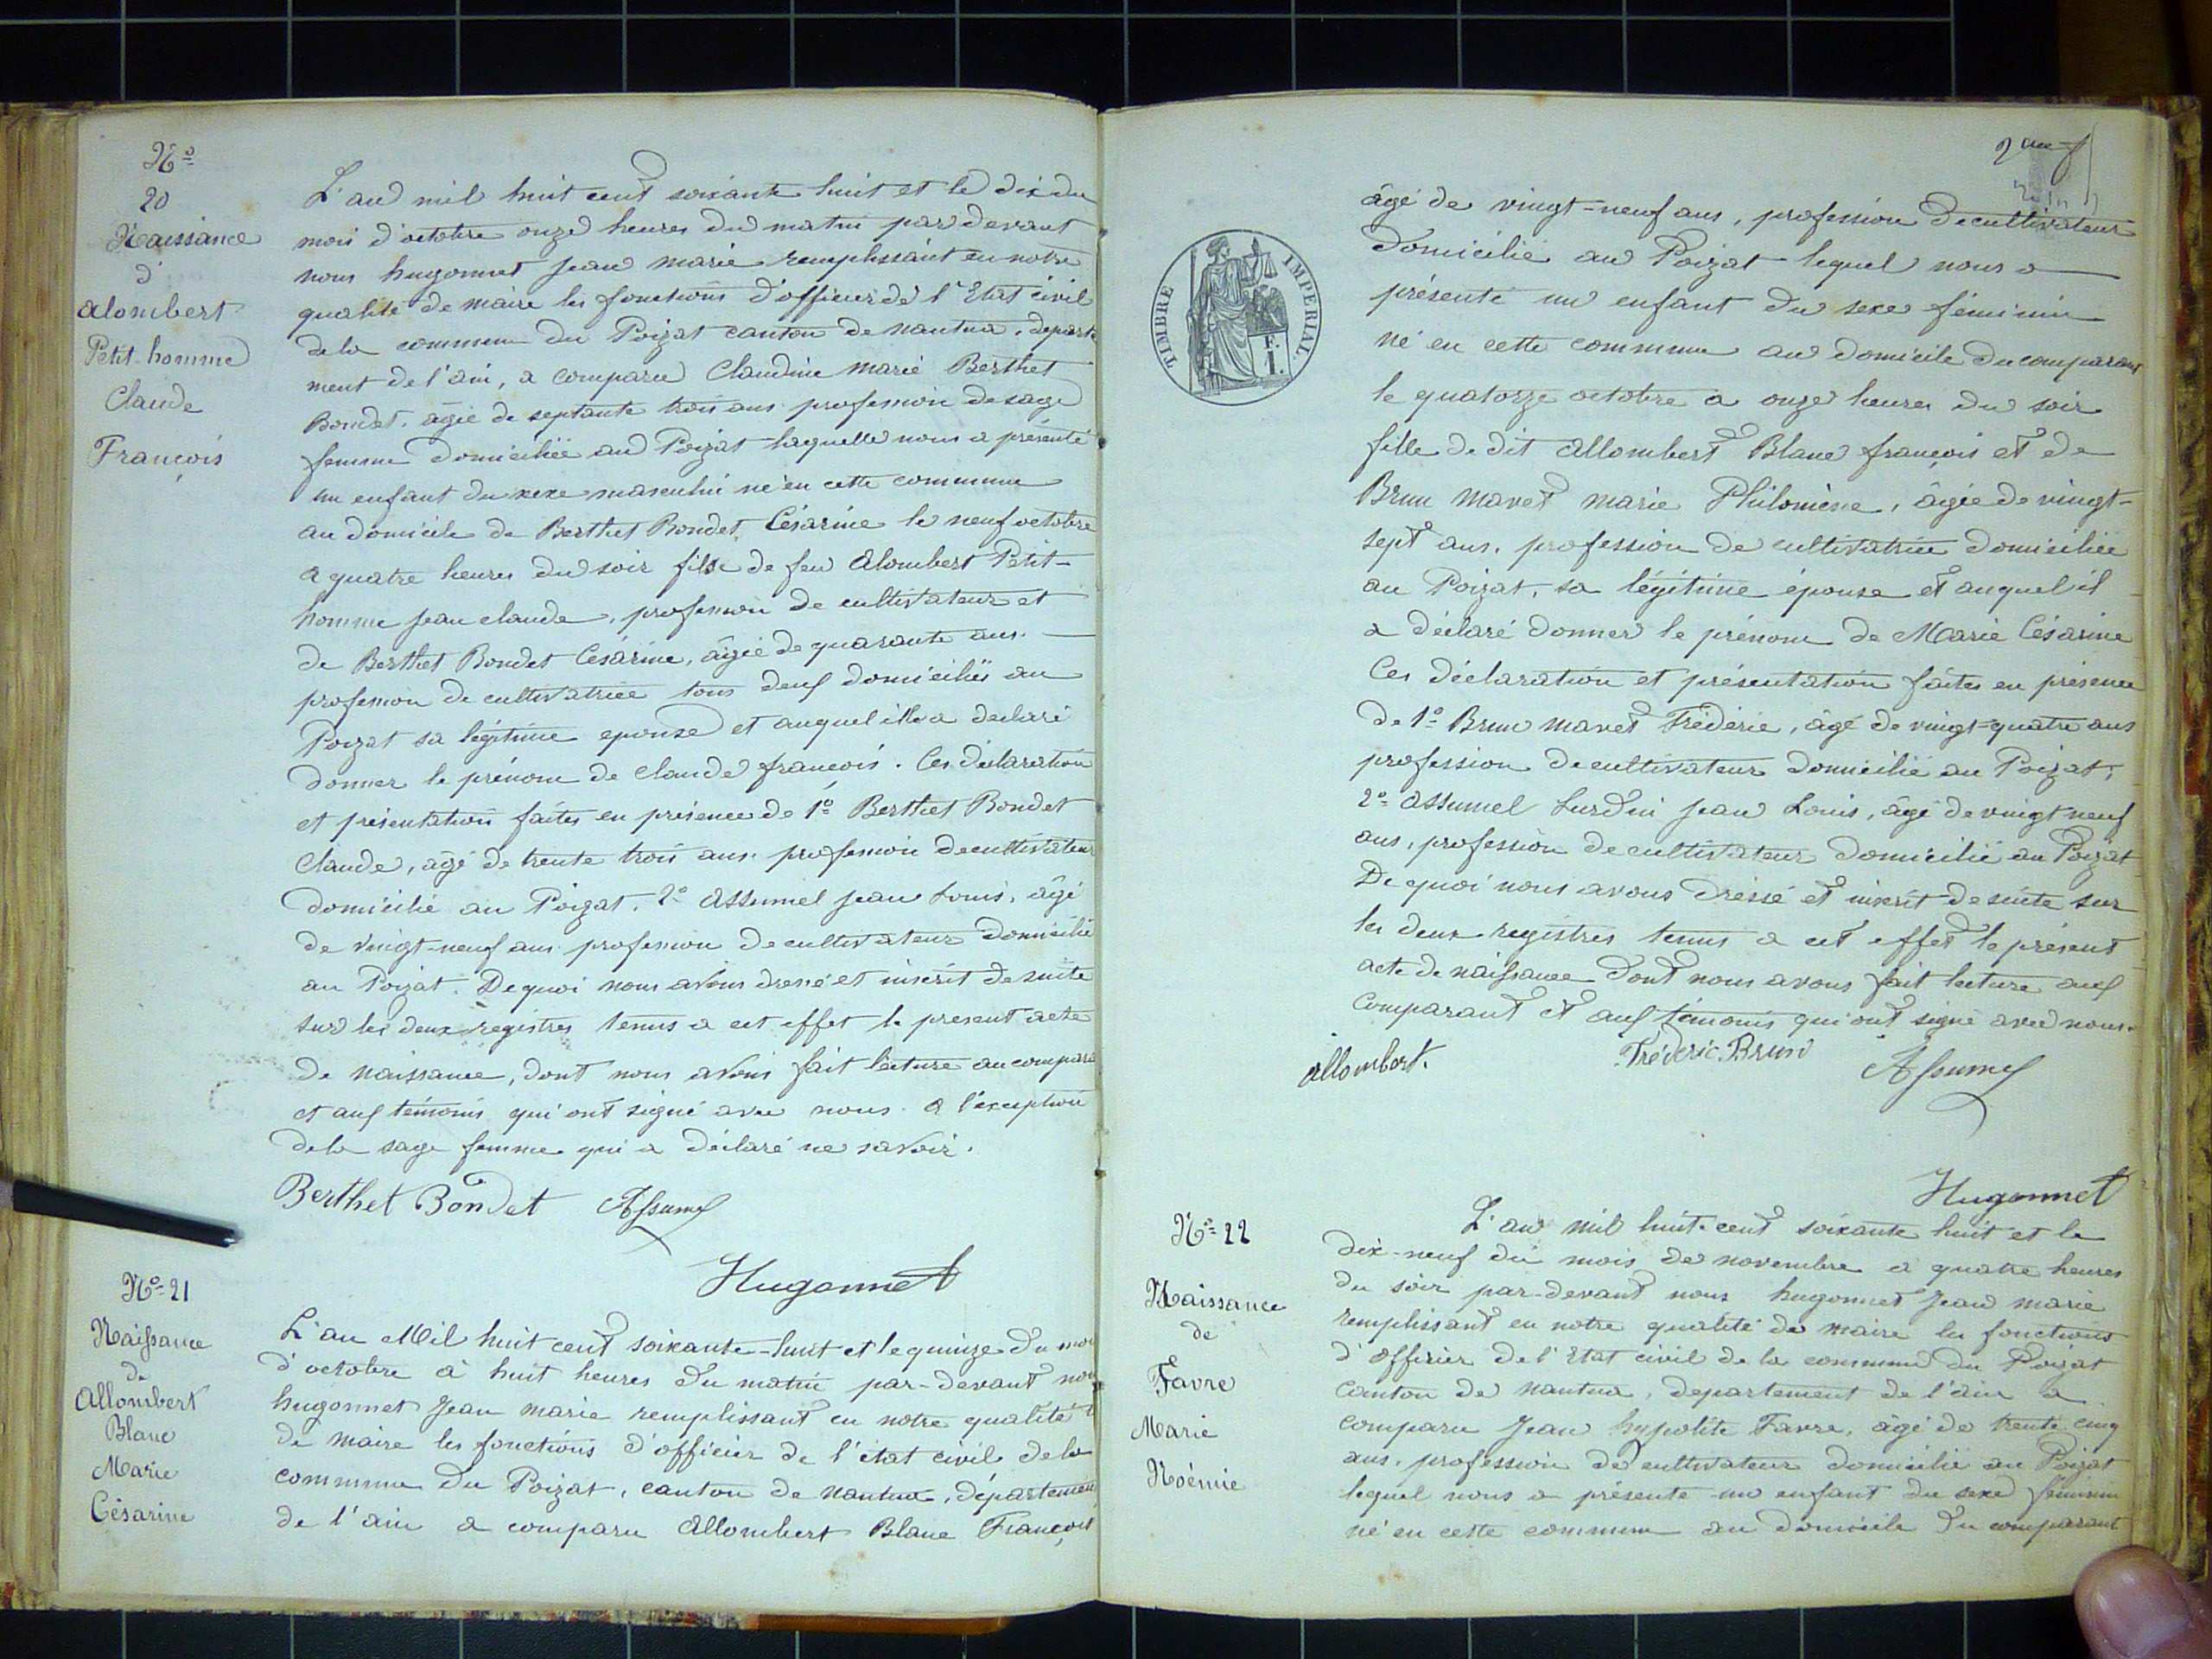 Nº
20
Naissance
d'
Alombert
Petit-homme
Claude
François
L'an mil huit cent soixante huit et le dix du
mois d'octobre onze heures du matin par devant
nous hugonnet Jean marie remplissant en notre
qualité de maire les fonctions d'officier de l'Etat civil
de la commune du Poizat canton de nantua, départe
ment de l'ain, a comparu Claudine marie Berthet
Bondet, âgée de septante trois ans profession de sage
femme domiciliée au Poizat laquelle nous a présenté
un enfant du sexe masculin né en cette commune
au domicile de Berthet Bondet Césarine le neuf octobre
a quatre heures du soir fils de feu Alombert Petit-
homme Jean claude, profession de cultivateur et
de Berthet Bondet Césarine, âgée de quarante ans.
profession de cultivatrice tous deux domiciliés au
Poizat sa légitime epouse et auquel elle a declaré
donner le prénom de Claude françois. Ces déclaration
et présentation faites en présence de 1º Berthet Bondet
Claude, âgé de trente trois ans profession de cultivateur
domicilié au Poizat. 2º Assumel Jean Louis, âgé
de vingt-neuf ans profession de cultivateur domicilié
au Poizat. De quoi nous avons dressé et inscrit de suite
sur les deux registres tenus a cet effet le present acte
de naissance, dont nous avons fait lecture au compara
et aux témoins qui ont signé avec nous. a l'exception
de la sage femme qui a déclaré ne savoir.
Berthet Bondet Assumel
Hugonnet
Nº 21
Naissance
de
Allombert
Blanc
Marie
Césarine
L'an Mil huit cent soixante-huit et le quinze du moi
d'octobre à huit heures du matin par-devant nou
hugonnet Jean marie remplissant en notre qualité
de maire les fonctions d'officier de l'état civil de la
commune du Poizat, canton de nantua, département
de l'ain a comparu Allombert Blanc François
âgé de vingt-neuf ans, profession de cultivateur
domicilié au Poizat lequel nous a
présenté un enfant du sexe féminin
né en cette commune au domicile du comparant
le quatorze octobre a onze heures du soir
fille de dit Allombert Blanc françois et de
Brun mavet marie Philomène, âgée de vingt-
sept ans, profession de cultivatrice domiciliée
au Poizat, sa légitime épouse et auquel il
a déclaré donner le prénom de Marie Césarine
Ces déclaration et présentation faites en présence
de 1º Brun mavet Frédéric, âgé de vingt-quatre ans
profession de cultivateur domicilié au Poizat,
2º Assumel Lurdin Jean Louis, âgé de vingt neuf
ans, profession de cultivateur domicilié au Poizat
De quoi nous avons dressé et inscrit de suite sur
les deux registres tenus a cet effet le présent
acte de naissance dont nous avons fait lecture aux
comparant et aux témoins qui ont signé avec nous.
allombert. Fréderic Brun Assumel
Hugonnet
TIMBRE IMPERIAL
F.
I.
Nº 22
Naissance
de
Favre
Marie
Noémie
L'an mil huit cent soixante huit et le
dix-neuf du mois de novembre a quatre heures
du soir par-devant nous hugonnet Jean marie
remplissant en notre qualité de maire les fonctions
d'officier de l'Etat civil de la commune du Poizat
canton de nantua, departement de l'ain a
comparu Jean hypolite Favre, âgé de trente cinq
ans, profession de cultivateur domicilié au Poizat
lequel nous a présenté un enfant du sexe féminin
né en cette commune au domicile du comparant